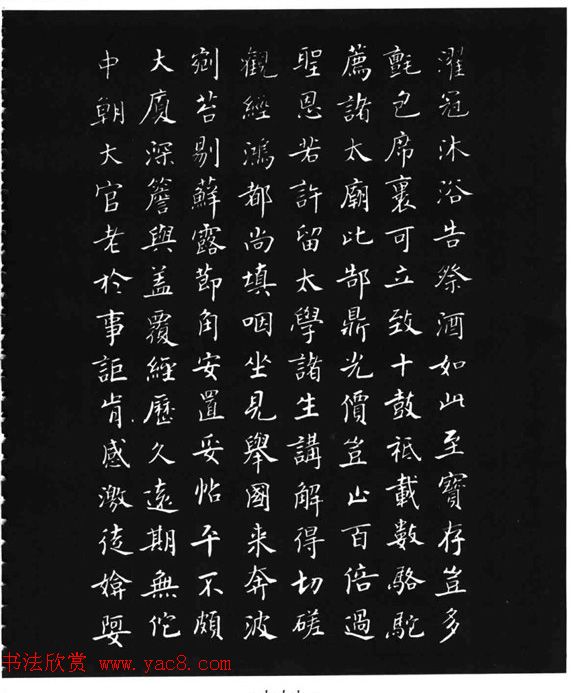 濯冠沐浴告祭酒如此至寶存豈多
氈包席裹可立致十鼓祗載數駱駝
薦諸太廟比郜鼎光價豈止百倍過
聖恩若許留太學諸生講解得切磋
觀經鴻都尚填咽坐見舉國来奔波
剜苔剔蘚露節角安置妥帖平不頗
大廈深簷與盖覆經歷久遠期無佗
中朝大官老於事詎肯感激徒媕婀
书法欣赏 www.yac8.com